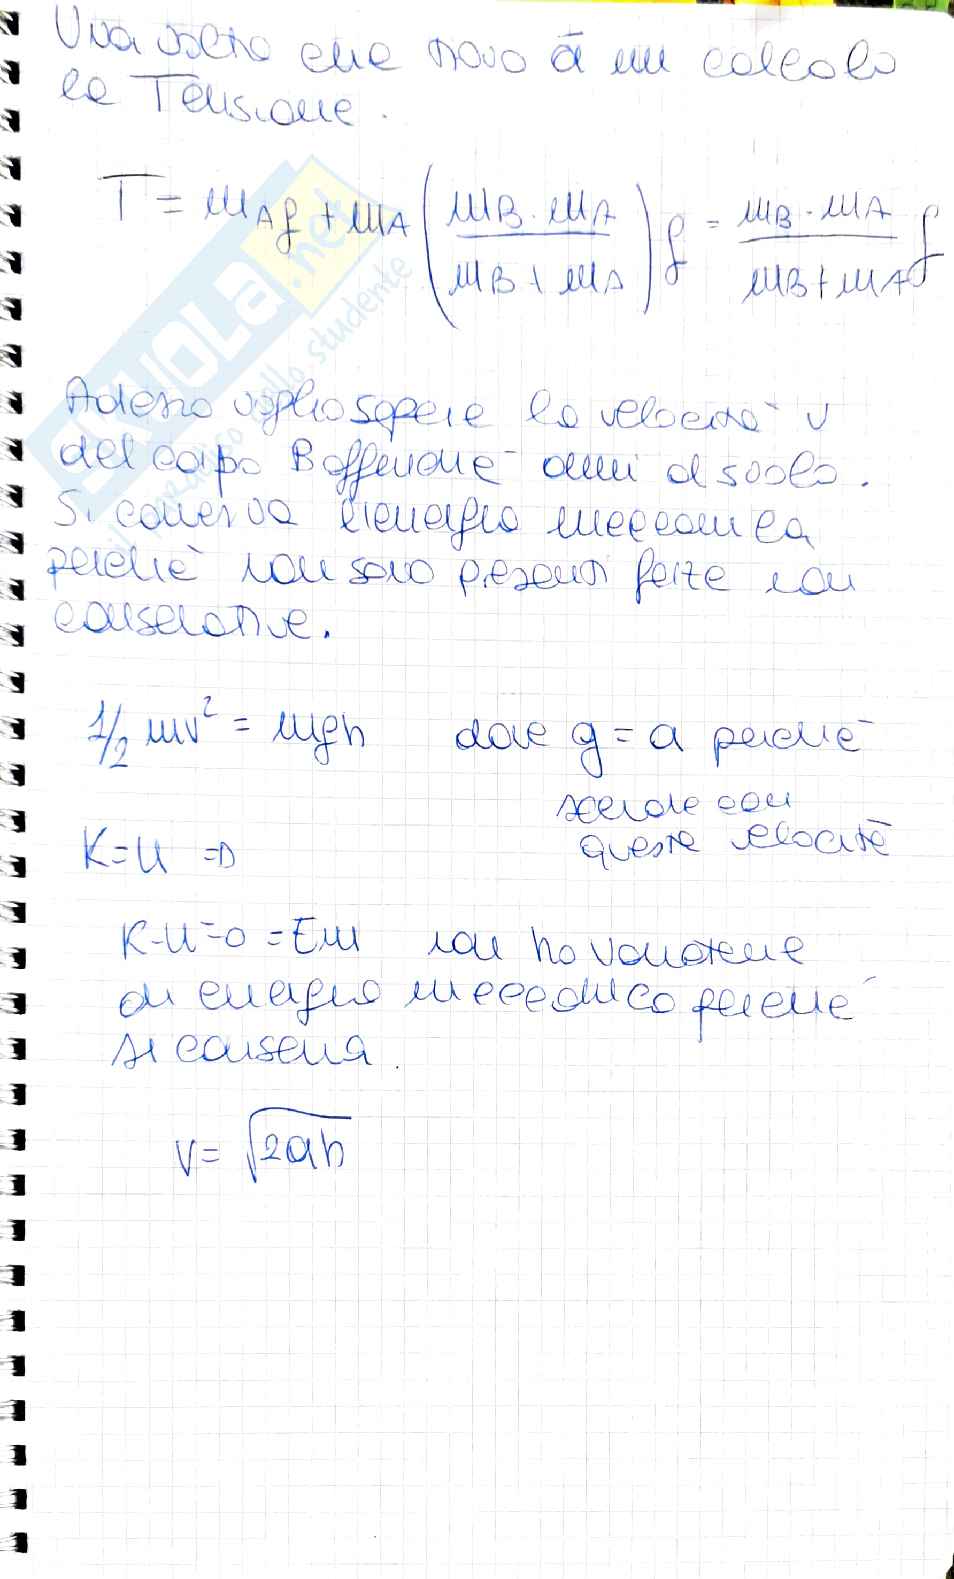 Una volta che trovo a mi calcolo
la Tensione.
T = mAg + mA (mB · mA / mB + mA) g = mB · mA / mB + mA g
Adesso voglio sapere la velocità v
del corpo B affinché arrivi al suolo.
Si conserva l'energia meccanica
perché non sono presenti forze non
conservative.
1/2 mv² = mgh dove g = a perché
scende con
questa velocità
K = U =>
K-U=0 = Em non ho variazione
di energia meccanica perché
si conserva.
v = √2ah
SKUOLA.net
il paradiso dello studente